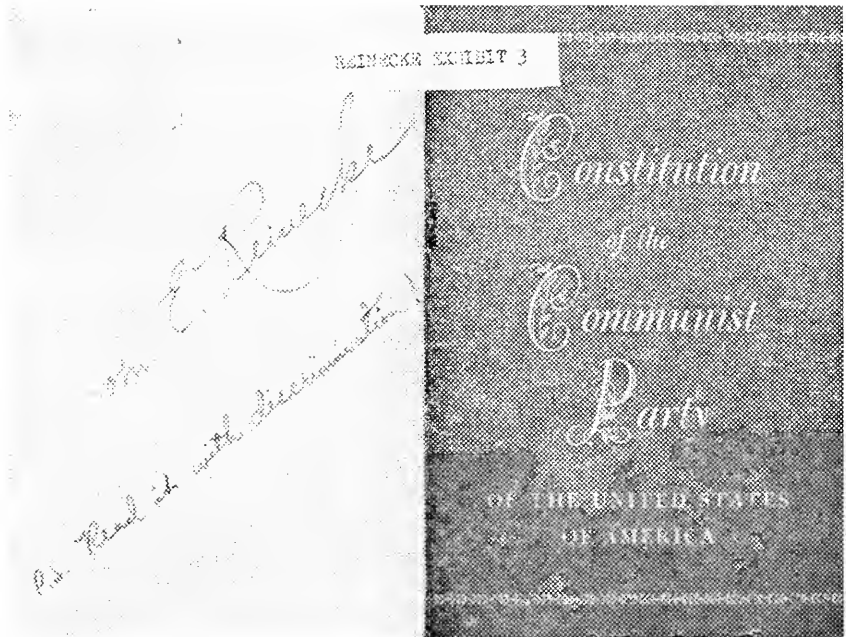 REINECKE EXHIBIT 3
E. Reinecke
P.S. Read it with discrimination!
Constitution
of the
Communist
Party
OF THE UNITED STATES
OF AMERICA